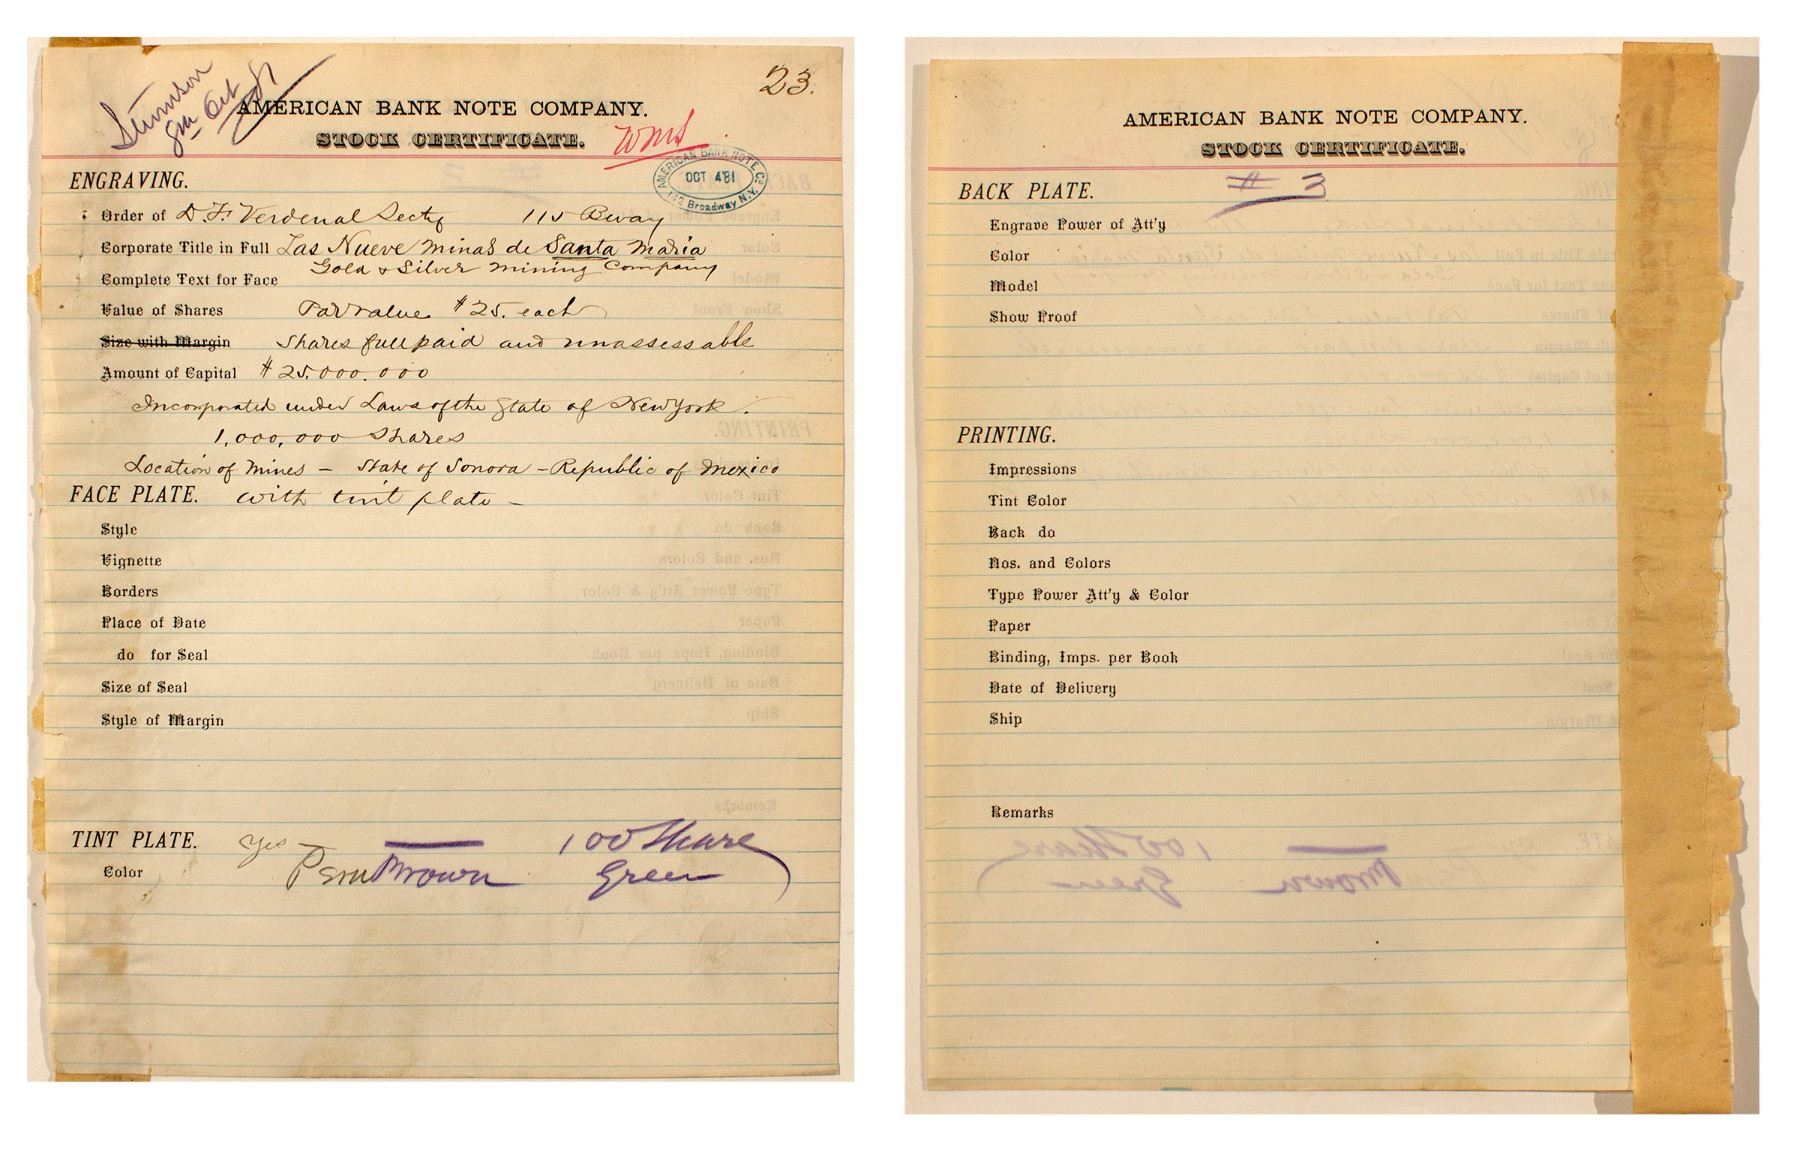 Stimson
8m Oct 81
23.
AMERICAN BANK NOTE COMPANY.
STOCK CERTIFICATE.
WMS
AMERICAN BANK NOTE Co
OCT 4 81
142 Broadway N.Y.
ENGRAVING.
Order of D. F. Verdenal Secty 115 Bway
Corporate Title in Full Las Nueve Minas de Santa Maria
Gold & Silver Mining Company
Complete Text for Face
Value of Shares Par value $25. each
Size with Margin Shares full paid and unassessable
Amount of Capital $25,000.000
Incorporated under Laws of the State of New York.
1,000,000 Shares
Location of Mines - State of Sonora - Republic of Mexico
FACE PLATE. with tint plate -
Style
Vignette
Borders
Place of Date
do for Seal
Size of Seal
Style of Margin
TINT PLATE. Yes 100 Share
Color Brown Green
AMERICAN BANK NOTE COMPANY.
STOCK CERTIFICATE.
BACK PLATE. # 3
Engrave Power of Att'y
Color
Model
Show Proof
PRINTING.
Impressions
Tint Color
Back do
Nos. and Colors
Type Power Att'y & Color
Paper
Binding, Imps. per Book
Date of Delivery
Ship
Remarks